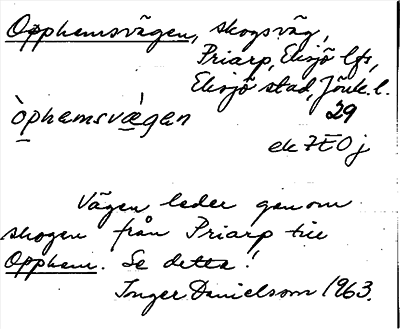 Opphemsvägen, skogsväg,
Priarp, Eksjö lfs,
Eksjö stad, Jönk. l.
29
òphemsvä̀gen
ek 7E0j
Vägen leder genom
skogen från Priarp till
Opphem. Se detta!
Inger Danielsson 1963.